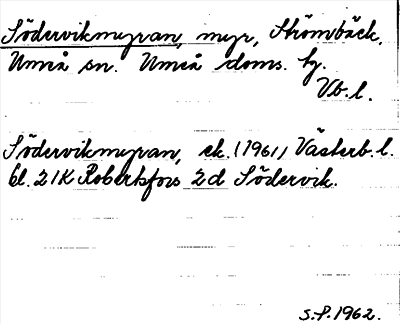 Södervikmyran, myr, Strömbäck,
Umeå sn. Umeå doms. hg.
Vb. l.
Södervikmyran, ek. (1961) Västerb. l.
bl. 21K Robertsfors 2d Södervik.
S.P. 1962.